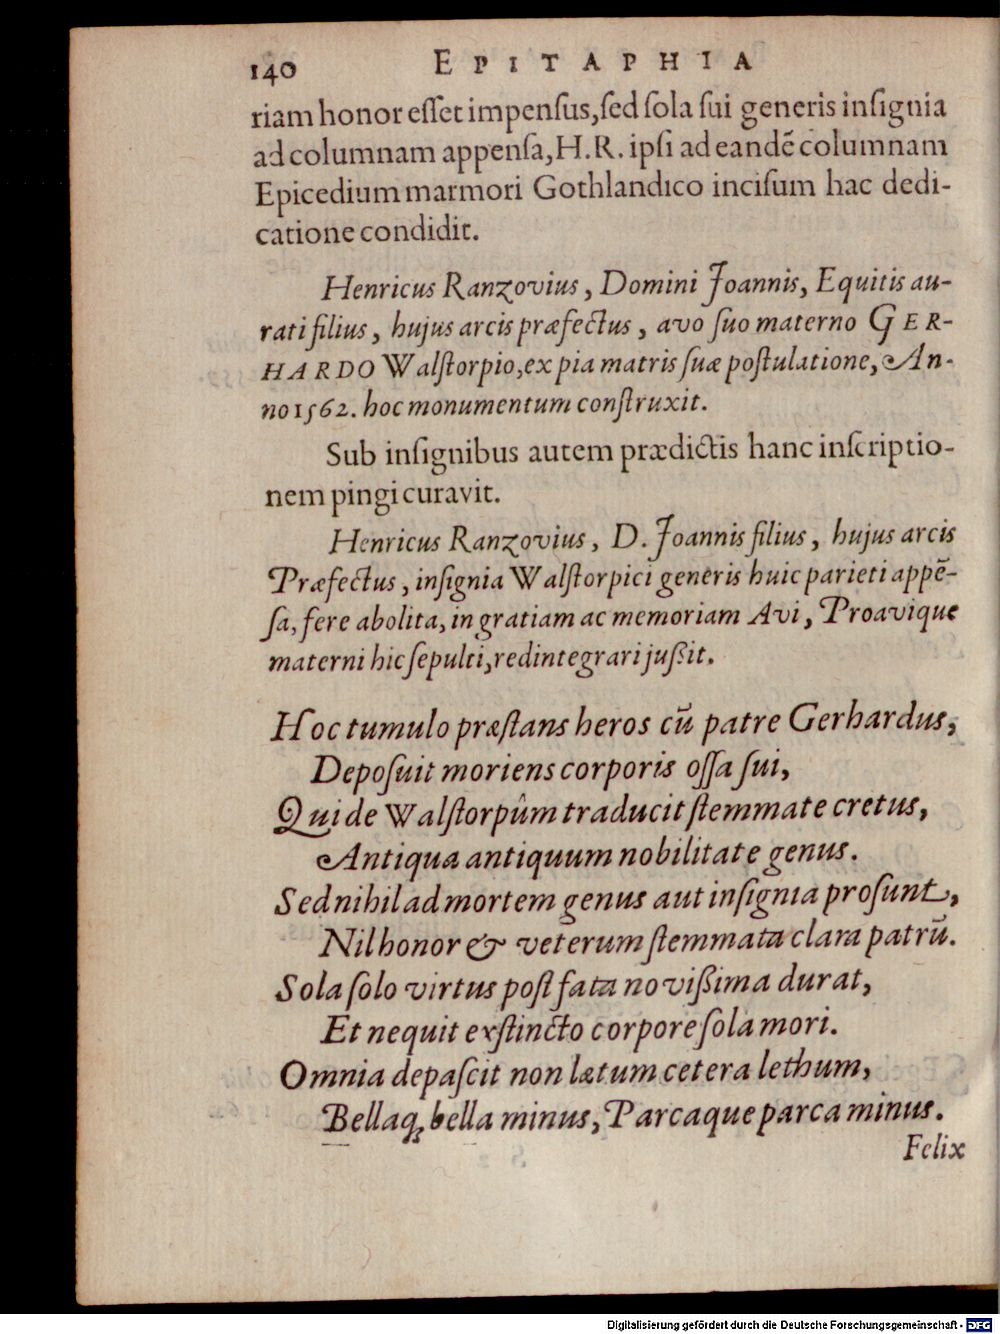 140 EPITAPHIA
riam honor eſſet impenſus, ſed ſola ſui generis inſignia
ad columnam appenſa, H.R. ipſi ad eandē columnam
Epicedium marmori Gothlandico inciſum hac dedi-
catione condidit.
Henricus Ranzovius, Domini Joannis, Equitis au-
rati filius, hujus arcis præfectus, avo ſuo materno GER-
HARDO Walſtorpio, ex pia matris ſuæ poſtulatione, An-
no 1562. hoc monumentum conſtruxit.
Sub inſignibus autem prædictis hanc inſcriptio-
nem pingi curavit.
Henricus Ranzovius, D. Joannis filius, hujus arcis
Præfectus, inſignia Walſtorpici generis huic parieti appē-
ſa, fere abolita, in gratiam ac memoriam Avi, Proavique
materni hic ſepulti, redintegrari juſſit.
Hoc tumulo præſtans heros cū patre Gerhardus,
Depoſuit moriens corporis oſſa ſui,
Qui de Walſtorpûm traducit ſtemmate cretus,
Antiqua antiquum nobilitate genus.
Sed nihil ad mortem genus aut inſignia proſunt,
Nil honor & veterum ſtemmata clara patrū.
Sola ſolo virtus poſt fata noviſſima durat,
Et nequit exſtincto corpore ſola mori.
Omnia depaſcit non lætum cetera lethum,
Bellaq; bella minus, Parcaque parca minus.
Felix
Digitalisierung gefördert durch die Deutsche Forschungsgemeinschaft - DFG